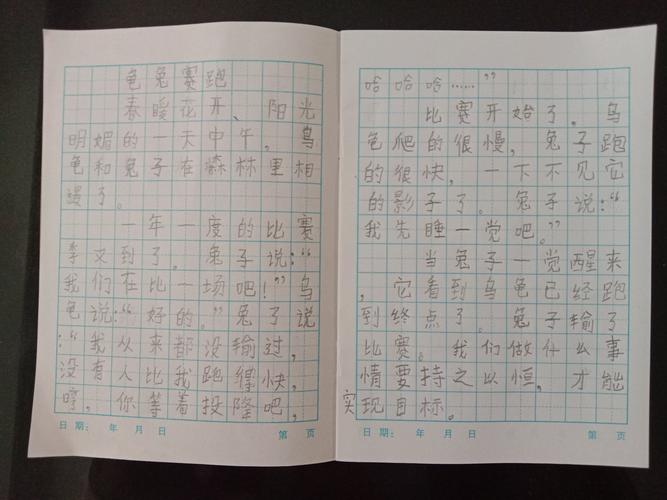 龟兔赛跑
春暖花开、阳光
明媚的一天中午，乌
龟和兔子在森林里相
遇了。
一年一度的比赛
季又到了。兔子说：“
我们在比一场吧！”乌
龟说：“好的。”兔子说
：“我从来都没输过，
没有人比我跑得快，
哼，你等着投降吧，
日期： 年 月 日 第 页
哈哈哈……”
比赛开始了。乌
龟爬的很慢，兔子跑
的很快，一下不见它
的影子了。兔子说：“
我先睡一觉吧。”
当兔子一觉醒来
，它看到乌龟已经跑
到终点了。兔子输了
比赛。我们做什么事
情要持之以恒，才能
实现目标。
日期： 年 月 日 第 页